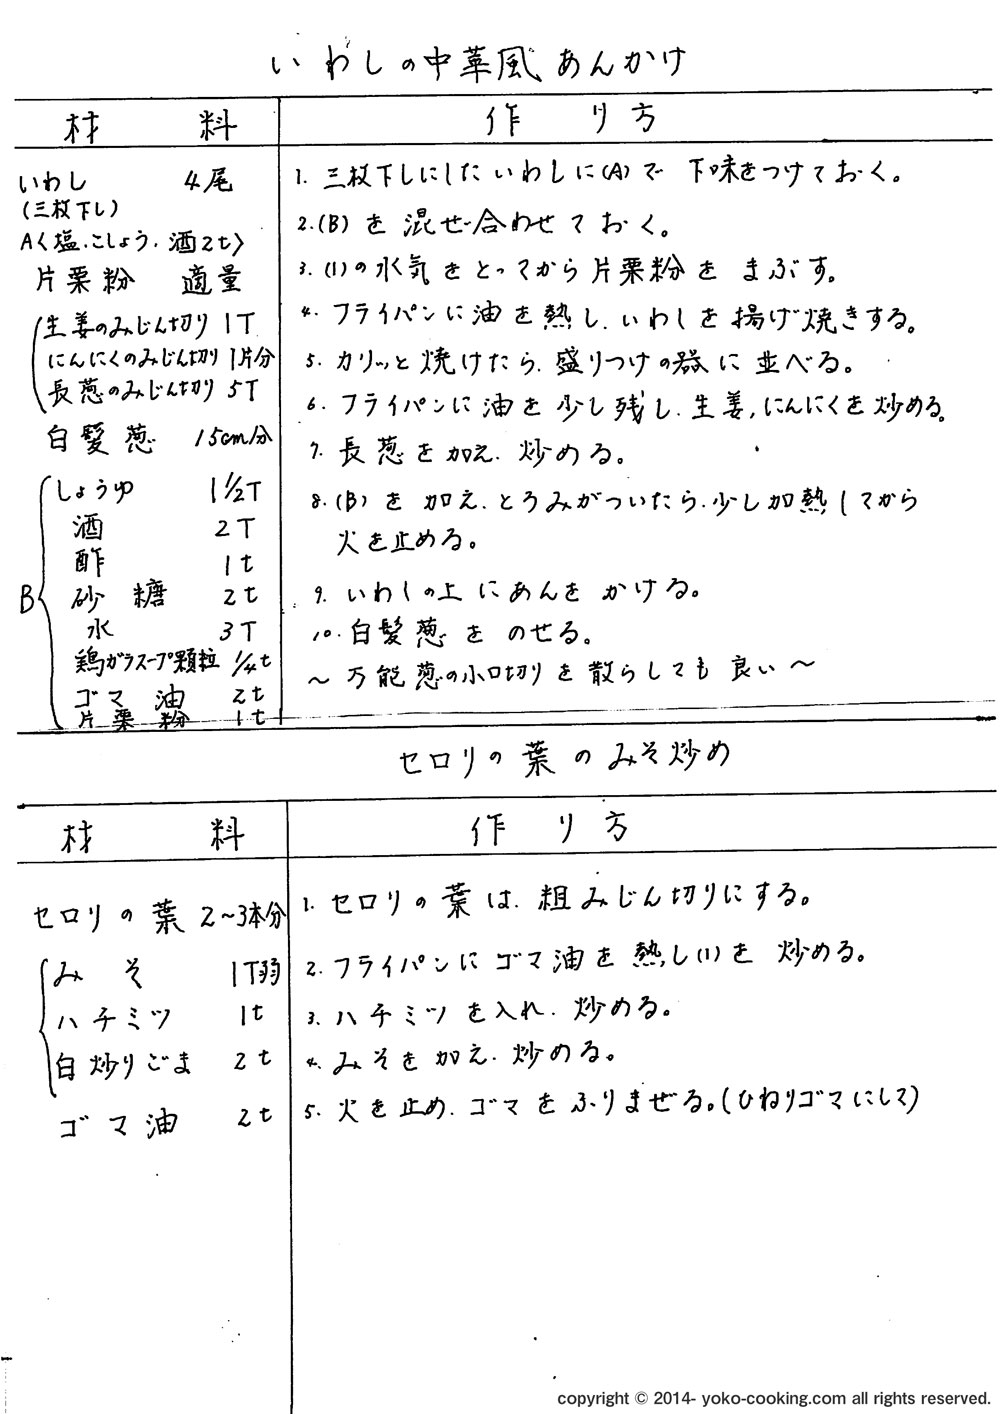 いわしの中華風あんかけ
材料
作り方
いわし 4尾
(三枚下し)
A〈塩.こしょう.酒2t〉
片栗粉 適量
生姜のみじん切り 1T
にんにくのみじん切り 1片分
長葱のみじん切り 5T
白髪葱 15cm分
B
しょうゆ 1 1/2T
酒 2T
酢 1t
砂糖 2t
水 3T
鶏ガラスープ顆粒 1/4t
ゴマ油 2t
片栗粉 1t
1. 三枚下しにしたいわしに(A)で下味をつけておく。
2.(B)を混ぜ合わせておく。
3.(1)の水気をとってから片栗粉をまぶす。
4. フライパンに油を熱し.いわしを揚げ焼きする。
5. カリッと焼けたら.盛りつけの器に並べる。
6. フライパンに油を少し残し.生姜,にんにくを炒める。
7. 長葱を加え.炒める。
8.(B)を加え.とろみがついたら.少し加熱してから
火を止める。
9. いわしの上にあんをかける。
10. 白髪葱をのせる。
〜万能葱の小口切りを散らしても良い〜
セロリの葉のみそ炒め
材料
作り方
セロリの葉 2〜3本分
みそ 1T弱
ハチミツ 1t
白炒りごま 2t
ゴマ油 2t
1. セロリの葉は.粗みじん切りにする。
2. フライパンにゴマ油を熱し(1)を炒める。
3. ハチミツを入れ.炒める。
4. みそを加え.炒める。
5. 火を止め.ゴマをふりまぜる。(ひねりゴマにして)
copyright © 2014- yoko-cooking.com all rights reserved.